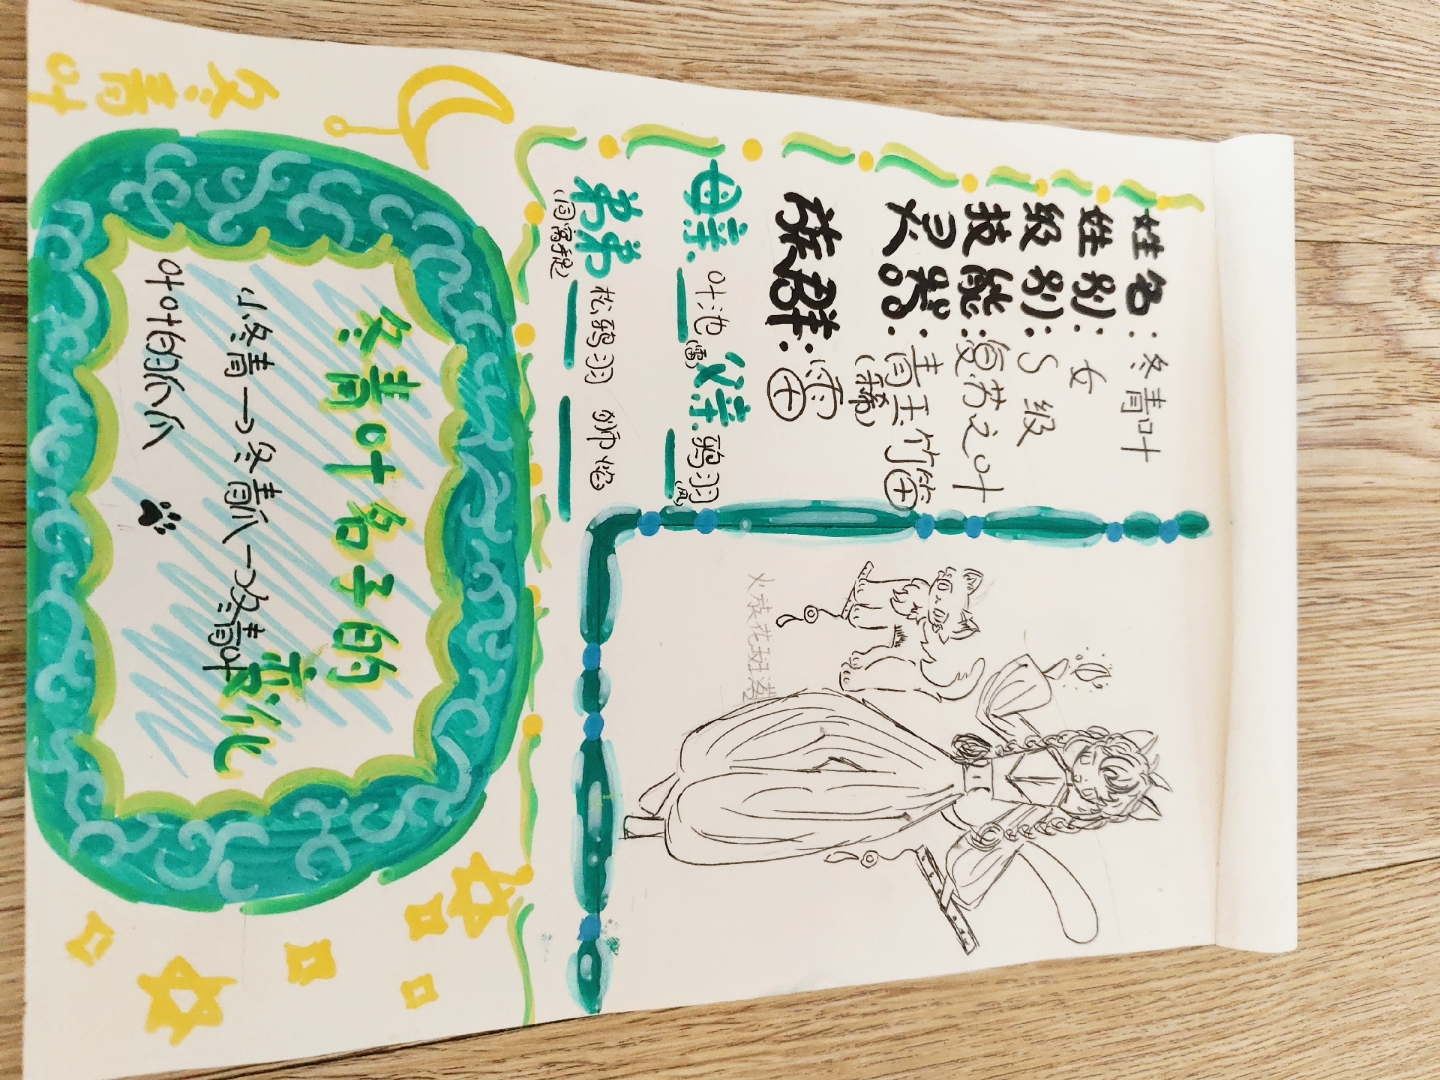 姓名：冬青叶
姓别：女
级别：S级
技能：复苏之叶
灵器：青玉竹笛
族群：雷
母亲：叶池（雷） 父亲：鸦羽（风）
弟弟：松鸦羽 狮焰
（同窝手足）
火族花斑湾
冬青叶名子的变化
小冬青→冬青爪→冬青叶
叶明爪
冬青叶